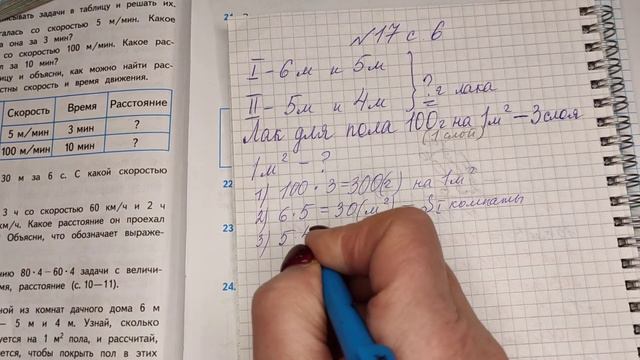 писывать задачи в таблицу и решать их.
галась со скоростью 5 м/мин. Какое
а она за 3 мин?
со скоростью 100 м/мин. Какое рас-
л за 10 мин?
ицу и объясни, как можно найти рас-
стны скорость и время движения.
Скорость Время Расстояние
5 м/мин 3 мин ?
100 м/мин 10 мин ?
30 м за 6 с. С какой скоростью
3 ч со скоростью 60 км/ч и 2 ч
км/ч. Какое расстояние он проехал
Объясни, что обозначает выраже-
нию 80·4−60·4 задачи с величи-
мя, расстояние (с. 10—11).
ной из комнат дачного дома 6 м
— 5 м и 4 м. Узнай, сколько
уется на 1 м² пола, и рассчитай,
ется, чтобы покрыть пол в этих
22
23
24.
№17 с. 6
I – 6м и 5м
II – 5м и 4м
? г лака
Лак для пола 100г на 1м² – 3 слоя
(1 слой)
1м² – ?
1) 100 · 3 = 300(г) на 1м²
2) 6 · 5 = 30(м²) – S I комнаты
3) 5 · 4